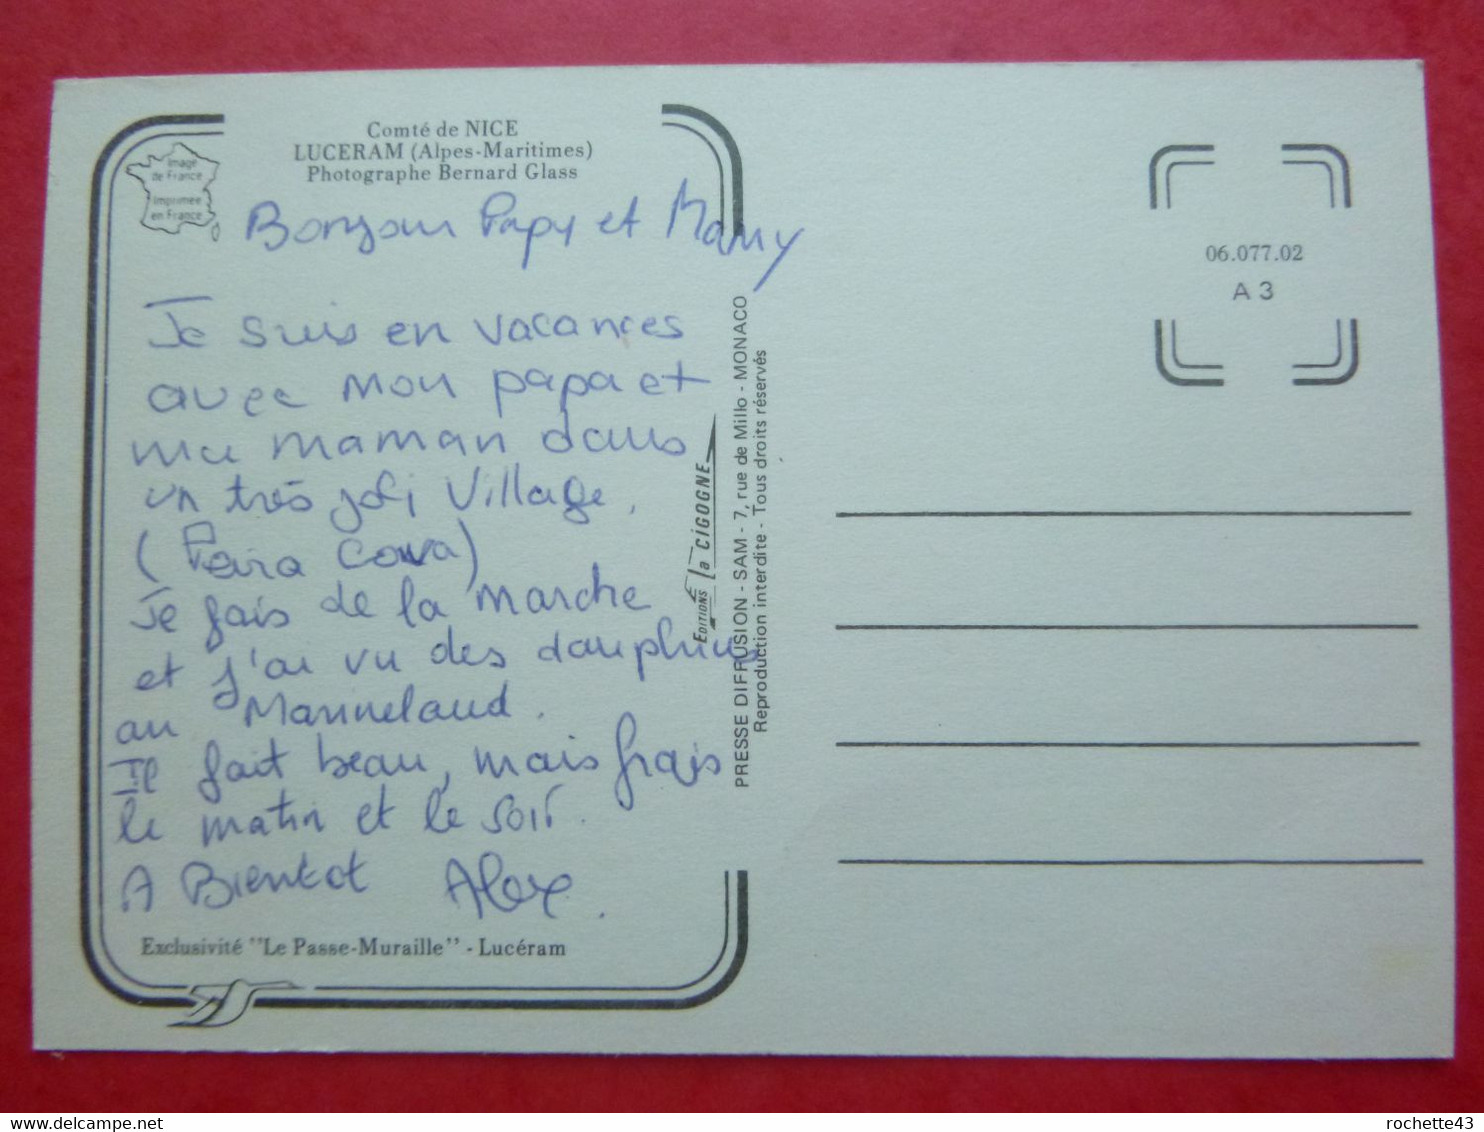 Comté de NICE
LUCERAM (Alpes-Maritimes)
Photographe Bernard Glass
Image
de France
Imprimée
en France
Bonjour Papy et Mamy
Je suis en vacances
avec mon papa et
ma maman dans
un très joli Village.
(Peira Cava)
Je fais de la marche
et j'ai vu des dauphins
au Marineland.
Il fait beau, mais frais
le matin et le soir.
A Bientot Alex.
Exclusivité "Le Passe-Muraille" - Lucéram
EDITIONS la CIGOGNE
PRESSE DIFFUSION - SAM - 7, rue de Millo - MONACO
Reproduction interdite - Tous droits réservés
06.077.02
A 3
rochette43
www.delcampe.net